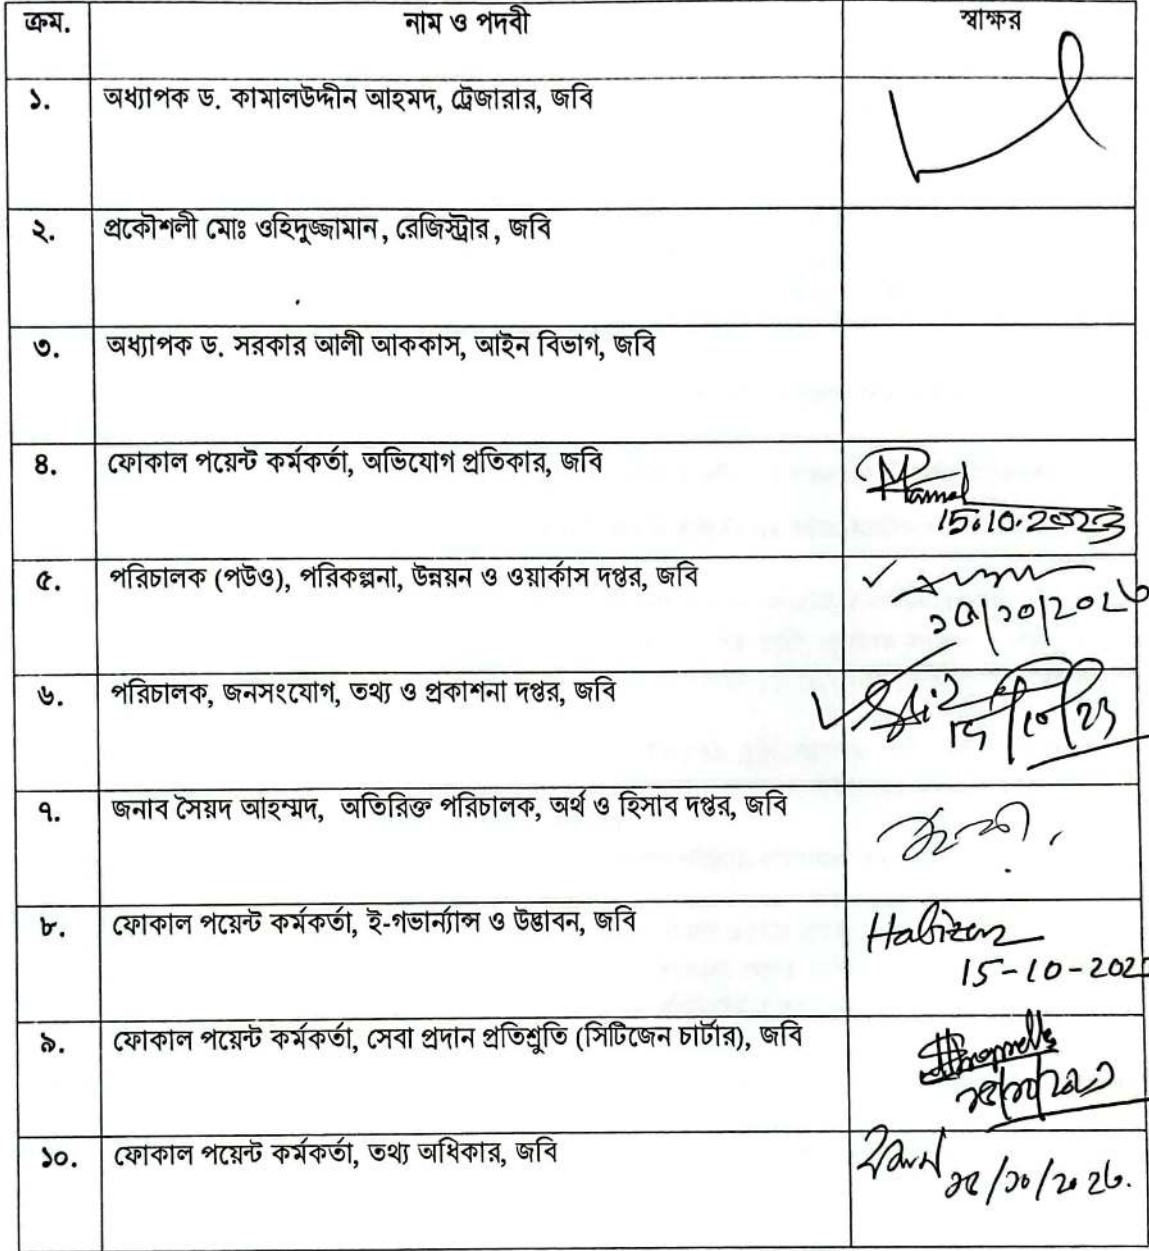 ক্রম. নাম ও পদবী স্বাক্ষর
১. অধ্যাপক ড. কামালউদ্দীন আহমদ, ট্রেজারার, জবি
২. প্রকৌশলী মোঃ ওহিদুজ্জামান, রেজিস্ট্রার, জবি
৩. অধ্যাপক ড. সরকার আলী আককাস, আইন বিভাগ, জবি
৪. ফোকাল পয়েন্ট কর্মকর্তা, অভিযোগ প্রতিকার, জবি
15.10.2023
৫. পরিচালক (পউও), পরিকল্পনা, উন্নয়ন ও ওয়ার্কাস দপ্তর, জবি
১৫/১০/২০২৩
৬. পরিচালক, জনসংযোগ, তথ্য ও প্রকাশনা দপ্তর, জবি
15/10/23
৭. জনাব সৈয়দ আহম্মদ, অতিরিক্ত পরিচালক, অর্থ ও হিসাব দপ্তর, জবি
৮. ফোকাল পয়েন্ট কর্মকর্তা, ই-গভার্ন্যান্স ও উদ্ভাবন, জবি
15-10-202
৯. ফোকাল পয়েন্ট কর্মকর্তা, সেবা প্রদান প্রতিশ্রুতি (সিটিজেন চার্টার), জবি
১০. ফোকাল পয়েন্ট কর্মকর্তা, তথ্য অধিকার, জবি
১৫/১০/২০২৩.